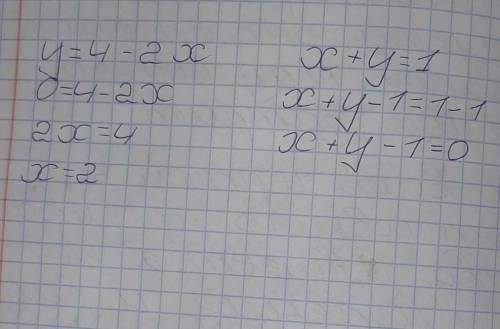 y=4-2x
0=4-2x
2x=4
x=2
x+y=1
x+y-1=1-1
x+y-1=0